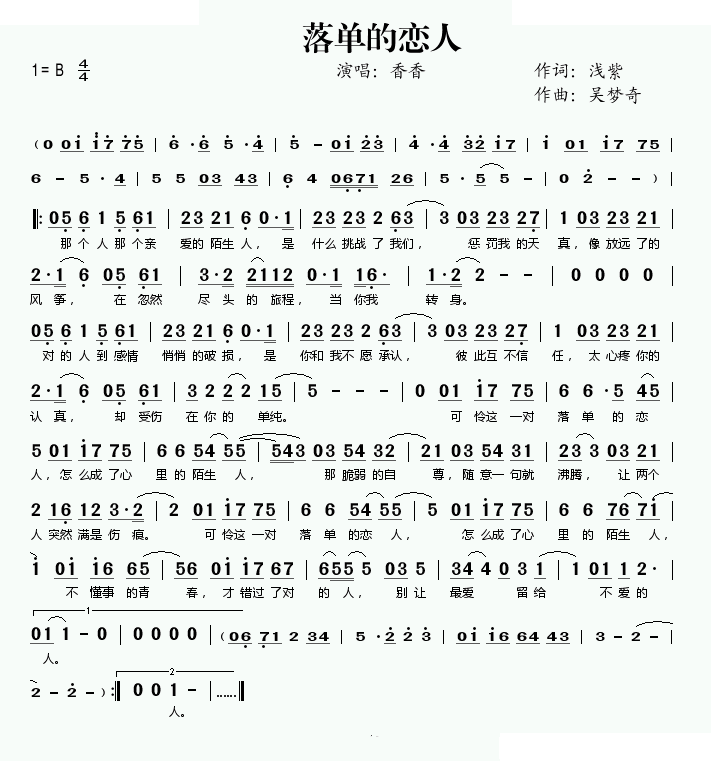 落单的恋人
1=B 4/4 演唱：香香 作词：浅紫
作曲：吴梦奇
（0 0i i7 75 | 6·6 5·4 | 5 – 0i 23 | 4·4 32 i7 | i 01 i7 75 |
6 – 5·4 | 5 5 03 43 | 6 4 0671 26 | 5·5 5 – | 0 2 – – ）|
‖: 05 6 1 5 61 | 23 21 6 0·1 | 23 23 2 63 | 3 03 23 27 | 1 03 23 21 |
那个人那个亲 爱的陌生人，是 什么挑战了我们， 惩罚我的天 真，像放远了的
2·1 6 05 61 | 3·2 2112 0·1 16· | 1·2 2 – – | 0 0 0 0 |
风筝， 在忽然 尽头的旅程，当你我 转身。
05 6 1 5 61 | 23 21 6 0·1 | 23 23 2 63 | 3 03 23 27 | 1 03 23 21 |
对的人到感情 悄悄的破损，是 你和我不愿承认， 彼此互不信 任，太心疼你的
2·1 6 05 61 | 3 2 2 2 15 | 5 – – – | 0 01 i7 75 | 6 6·5 45 |
认真， 却受伤 在你的单纯。 可怜这一对 落单的恋
5 01 i7 75 | 6 6 54 55 | 543 03 54 32 | 21 03 54 31 | 23 3 03 21 |
人，怎么成了心 里的陌生人， 那脆弱的自 尊，随意一句就 沸腾， 让两个
2 16 12 3·2 | 2 01 i7 75 | 6 6 54 55 | 5 01 i7 75 | 6 6 76 71 |
人突然满是伤痕。 可怜这一对 落单的恋人， 怎么成了心 里的陌生人，
i 0i i6 65 | 56 0i i7 67 | 655 5 03 5 | 34 4 0 31 | 1 01 1 2· |
不懂事的青 春，才错过了对 的人， 别让 最爱 留给 不爱的
1
01 1 – 0 | 0 0 0 0 |（06 71 2 34 | 5·2 2 3 | 0i i6 64 43 | 3 – 2 – |
人。
2
2 – 2 – ）:‖ 0 0 1 – |……‖
人。